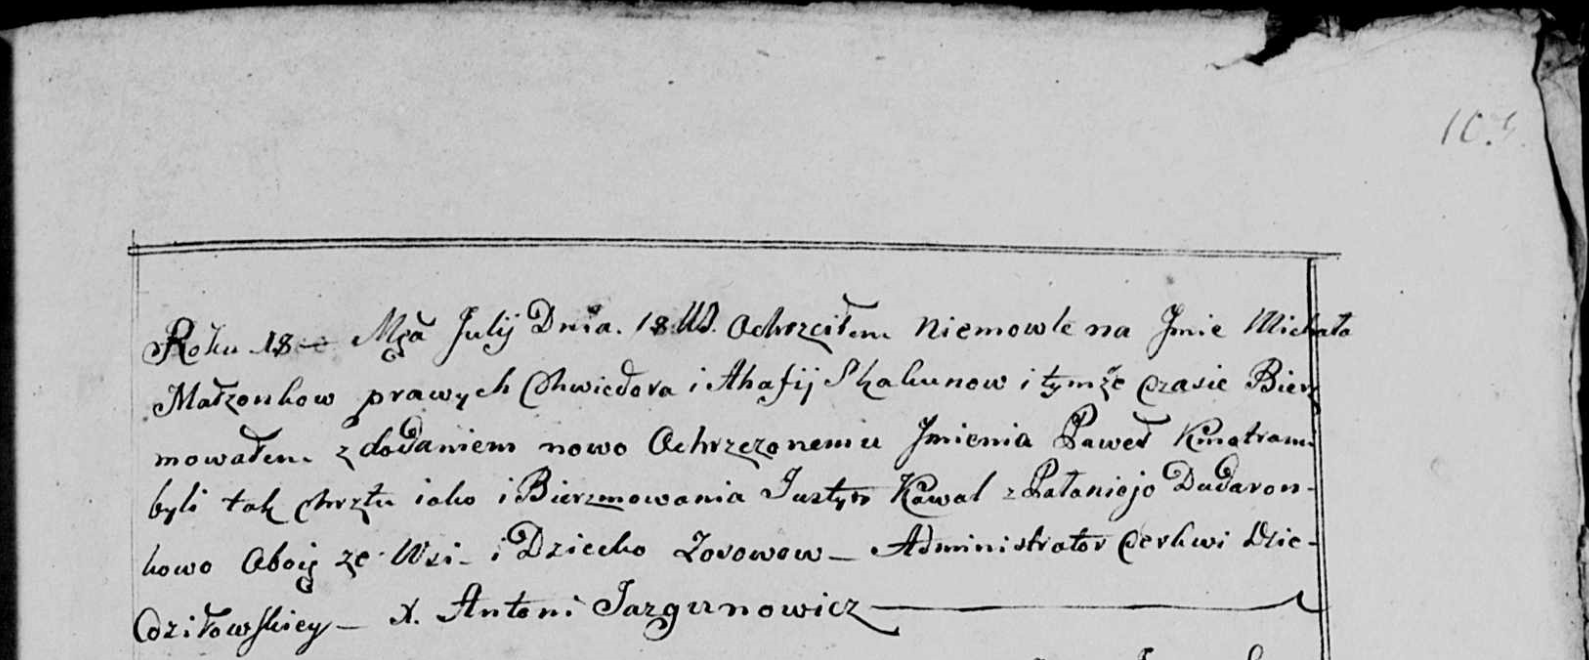 103.
Roku 18— Mca Julij Dnia. 18. VS. Ochrzciłem Niemowle na Jmie Michała
Małzonkow prawych Chwiedora i Ahafij Skakunow i tymże czasie Bierz
mowałem z dodaniem nowo Ochrzczonemu Jmienia Paweł Kmotrami
byli tak chrztu iako i Bierzmowania Justyn Kawal z Pałaniejo Dudaron-
kowo Oboij ze Wsi - i Dziecko Zosowow — Administrator Cerkwi Dzie-
dziłowskiey — X. Antoni Jazgunowicz —